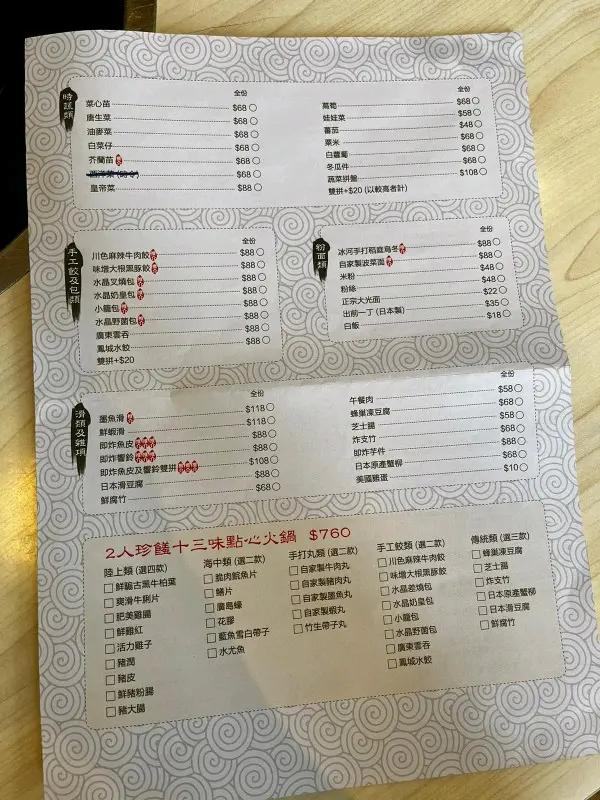 時蔬類
全份
菜心苗 $68
唐生菜 $68
油麥菜 $68
白菜仔 $68
芥蘭苗 $68
西洋菜 $68
皇帝菜 $88
全份
萵筍 $68
娃娃菜 $58
蕃茄 $48
粟米 $68
白蘿蔔 $68
冬瓜件 $68
蔬菜拼盤 $108
雙拼+$20 (以較高者計)
手工餃及包類
全份
川色麻辣牛肉餃 $88
味增大根黑豚餃 $88
水晶叉燒包 $88
水晶奶皇包 $88
小籠包 $88
水晶野菌包 $88
廣東雲吞 $88
鳳城水餃 $88
雙拼+$20
粉面類
全份
冰河手打稻庭烏冬 $88
自家製菠菜面 $88
米粉 $48
粉絲 $48
正宗大光面 $22
出前一丁 (日本製) $35
白飯 $18
滑類及雜項
全份
墨魚滑 $118
鮮蝦滑 $118
即炸魚皮 $88
即炸響鈴 $88
即炸魚皮及響鈴雙拼 $108
日本滑豆腐 $88
鮮腐竹 $68
全份
午餐肉 $58
蜂巢凍豆腐 $68
芝士腸 $58
炸支竹 $68
即炸芋件 $88
日本原產蟹柳 $68
美國雞蛋 $10
2人珍饈十三味點心火鍋 $760
陸上類 (選四款)
鮮騸古黑牛柏葉
爽滑牛脷片
肥美雞腸
鮮雞紅
活力雞子
豬潤
豬皮
鮮豬粉腸
豬大腸
海中類 (選二款)
脆肉鯇魚片
鱔片
廣島蠔
花膠
藍魚雪白帶子
水尤魚
手打丸類 (選二款)
自家製牛肉丸
自家製豬肉丸
自家製墨魚丸
自家製蝦丸
竹生帶子丸
手工餃類 (選二款)
川色麻辣牛肉餃
味增大根黑豚餃
水晶差燒包
水晶奶皇包
小籠包
水晶野菌包
廣東雲吞
鳳城水餃
傳統類 (選三款)
蜂巢凍豆腐
芝士腸
炸支竹
日本原產蟹柳
日本滑豆腐
鮮腐竹